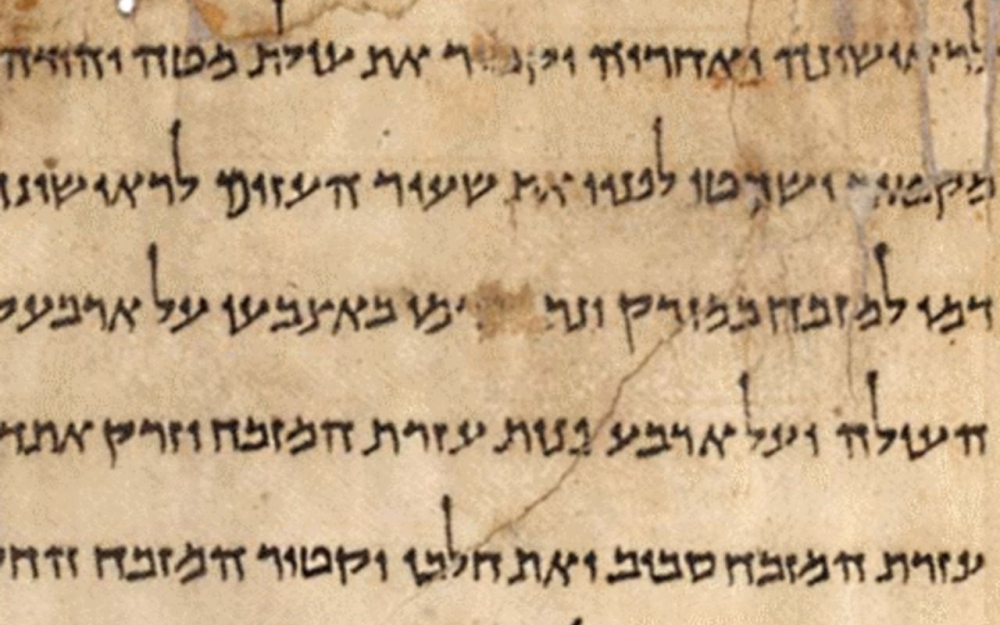 לראישונה ואחריה יקטיר את עולת מטה יהודה
מקטיר ושחטו לפניו את שעיר העזים לראישונ
דמו למזבח במזרק באצבעו על ארבע
העולה ועל ארבע פנות עזרת המזבח וזרק את ד
עזרת המזבח סביב ואת חלבו יקטיר המזבח הח